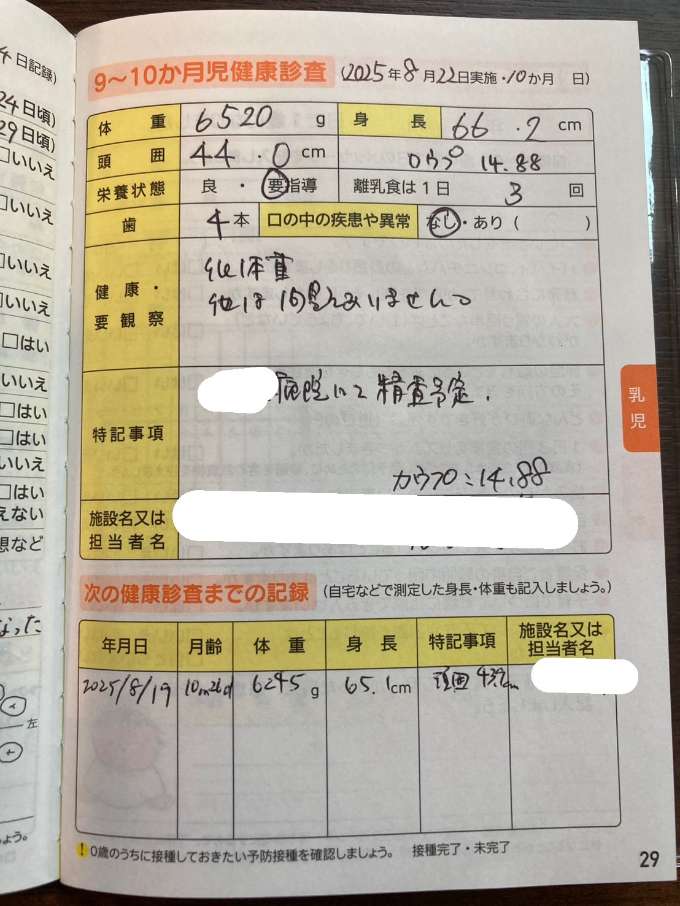 4日記録)
24日頃)
29日頃)
□いいえ
□いいえ
□いいえ
□いいえ
□はい
いいえ
□はい
□はい
いいえ
□はい
えない
想など
なった
左
ょう。
9〜10か月児健康診査 (2025年8月22日実施・10か月 日)
体重 6520 g 身長 66.2 cm
頭囲 44.0 cm カウプ 14.88
栄養状態 良・要指導 離乳食は1日 3 回
歯 4本 口の中の疾患や異常 なし・あり( )
健康・要観察 低体重
他は問題ありません。
特記事項 病院にて精査予定.
カウプ:14.88
施設名又は
担当者名
乳児
次の健康診査までの記録 (自宅などで測定した身長・体重も記入しましょう。)
年月日 月齢 体重 身長 特記事項 施設名又は担当者名
2025/8/19 10m26d 6245 g 65.1cm 頭囲 43.9cm
! 0歳のうちに接種しておきたい予防接種を確認しましょう。 接種完了・未完了
29